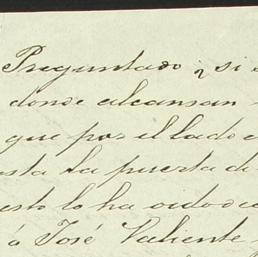 Preguntado ¿ si
donde alcansan
que por el lado
sta la puerta de
esto lo ha oido de
á José Valiente